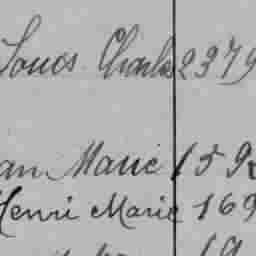 Louis Charles 2379
an Marie 159
Henri Marie 169
19